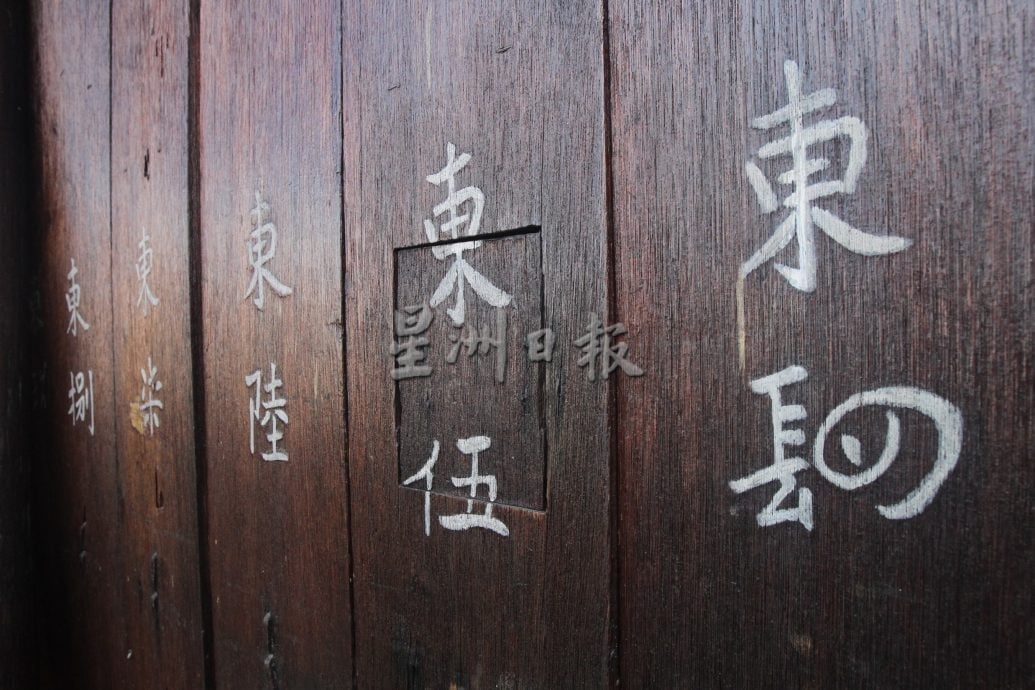 東肆
東伍
東陸
東柒
東捌
星洲日報